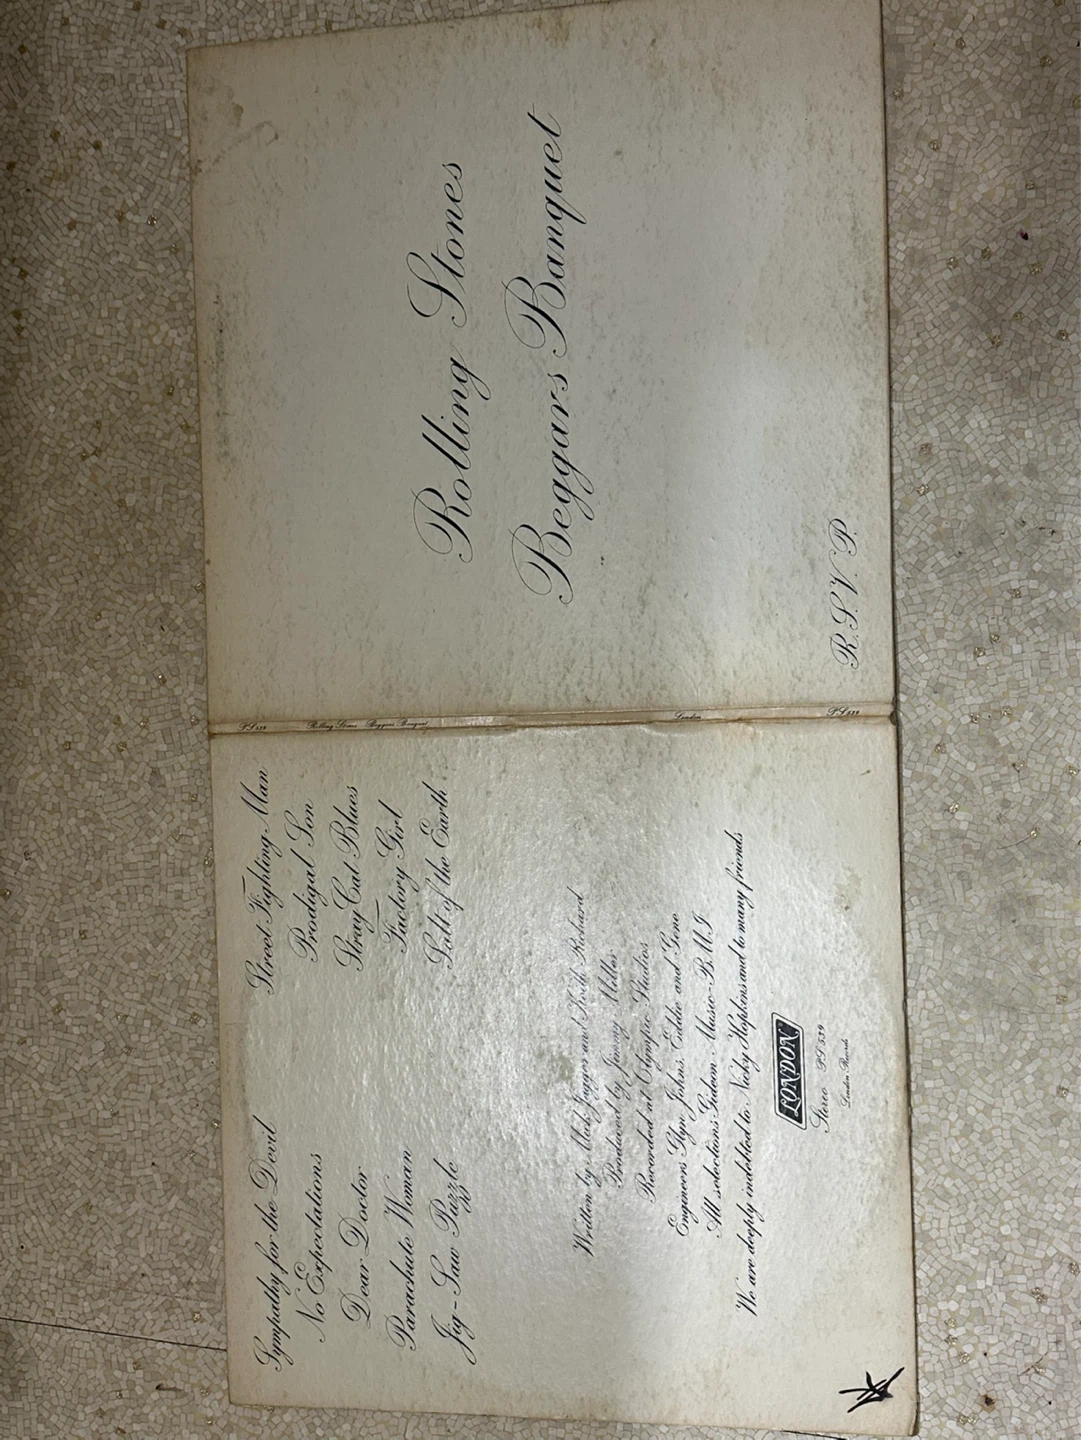 Rolling Stones
Beggars Banquet
R.S.V.P.
PS 539 Rolling Stones Beggars Banquet London PS 539
Sympathy for the Devil
No Expectations
Dear Doctor
Parachute Woman
Jig-Saw Puzzle
Street Fighting Man
Prodigal Son
Stray Cat Blues
Factory Girl
Salt of the Earth
Written by Mick Jagger and Keith Richard
Produced by Jimmy Miller
Recorded at Olympic Studios
Engineers Glyn Johns, Eddie and Gene
All selections Gideon Music-BMI
We are deeply indebted to Nicky Hopkins and to many friends
LONDON
Stereo PS 539
London Records